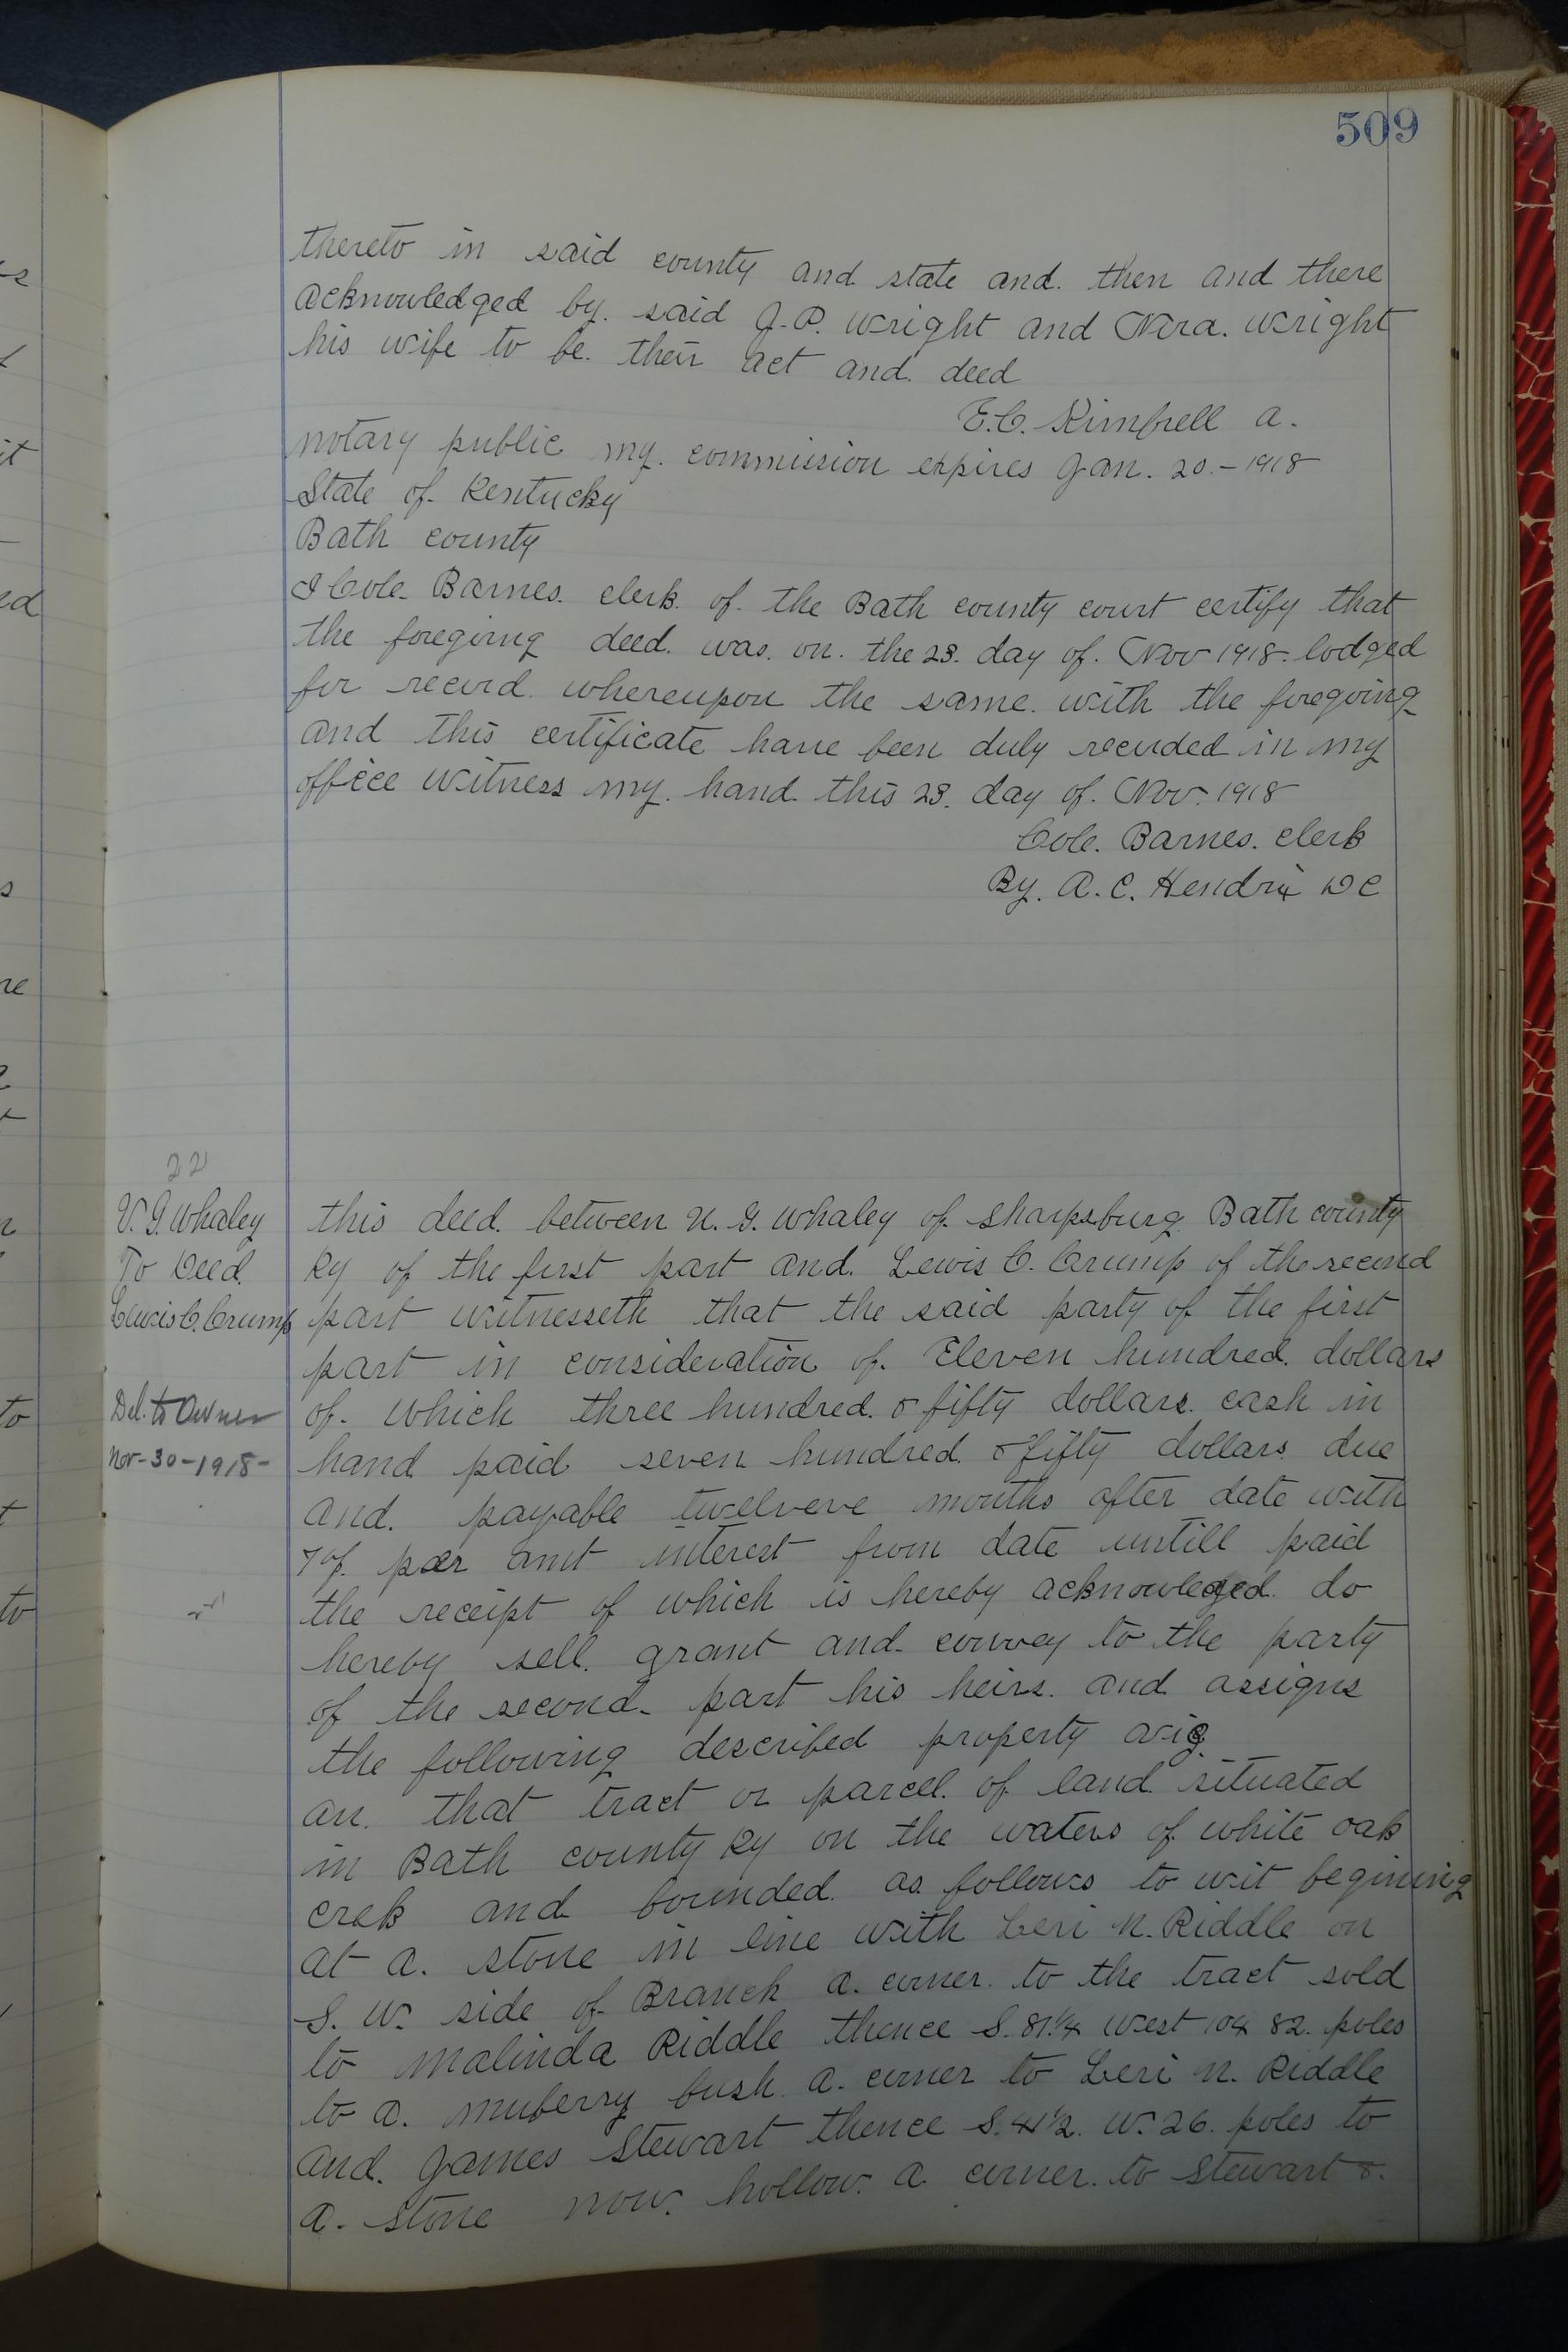 509
thereto in said county and state and. then and there
acknowledged by. said J.P. Wright and Nora. Wright
his wife to be. their act and. deed
E.C. Kimbrell a.
notary public my. commission expires Jan. 20.-1918
State of Kentucky
Bath county
I Cole Barnes. clerk. of. the Bath county court certify that
the foreging deed. was. on. the 23. day of. Nov 1918. lodged
for record. whereupon the same. with the foregoing
and this certificate have been duly recorded in my
office witness my. hand. this 23. day of. Nov. 1918
Cole. Barnes. clerk
By. A.C. Hendrix DC
22
V.G. Whaley
To Deed.
Lewis C. Crump
Del. to Owner
Nov-30-1918-
this deed. between V.G. Whaley of Sharpsburg Bath county
Ky of the first part and. Lewis C. Crump of the second
part witnesseth that the said party of the first
part in consideration of. Eleven hundred. dollars
of. which three hundred. & fifty dollars. cash in
hand paid seven hundred. & fifty dollars. due
and. payable twelveve months after date with
7 % per amt interest from date untill paid
the receipt of which is hereby acknowledged. do
hereby sell. grant and. convey to the party
of the second. part his heirs. and assigns
the following described property viz
an. that tract or parcel. of land situated
in Bath county Ky on the waters of white oak
crek and bounded. as follows to wit begining
at a. stone in line with Levi N. Riddle on
S. W. side of Branch a. corner. to the tract sold
to Malinda Riddle thence S. 81.1/4 West 104 82. poles
to a. muberry bush. a. corner to Levi N. Riddle
and. James Stewart thence S. 41/2. W. 26. poles to
a. stone now. hollow. a corner. to Stewart &.